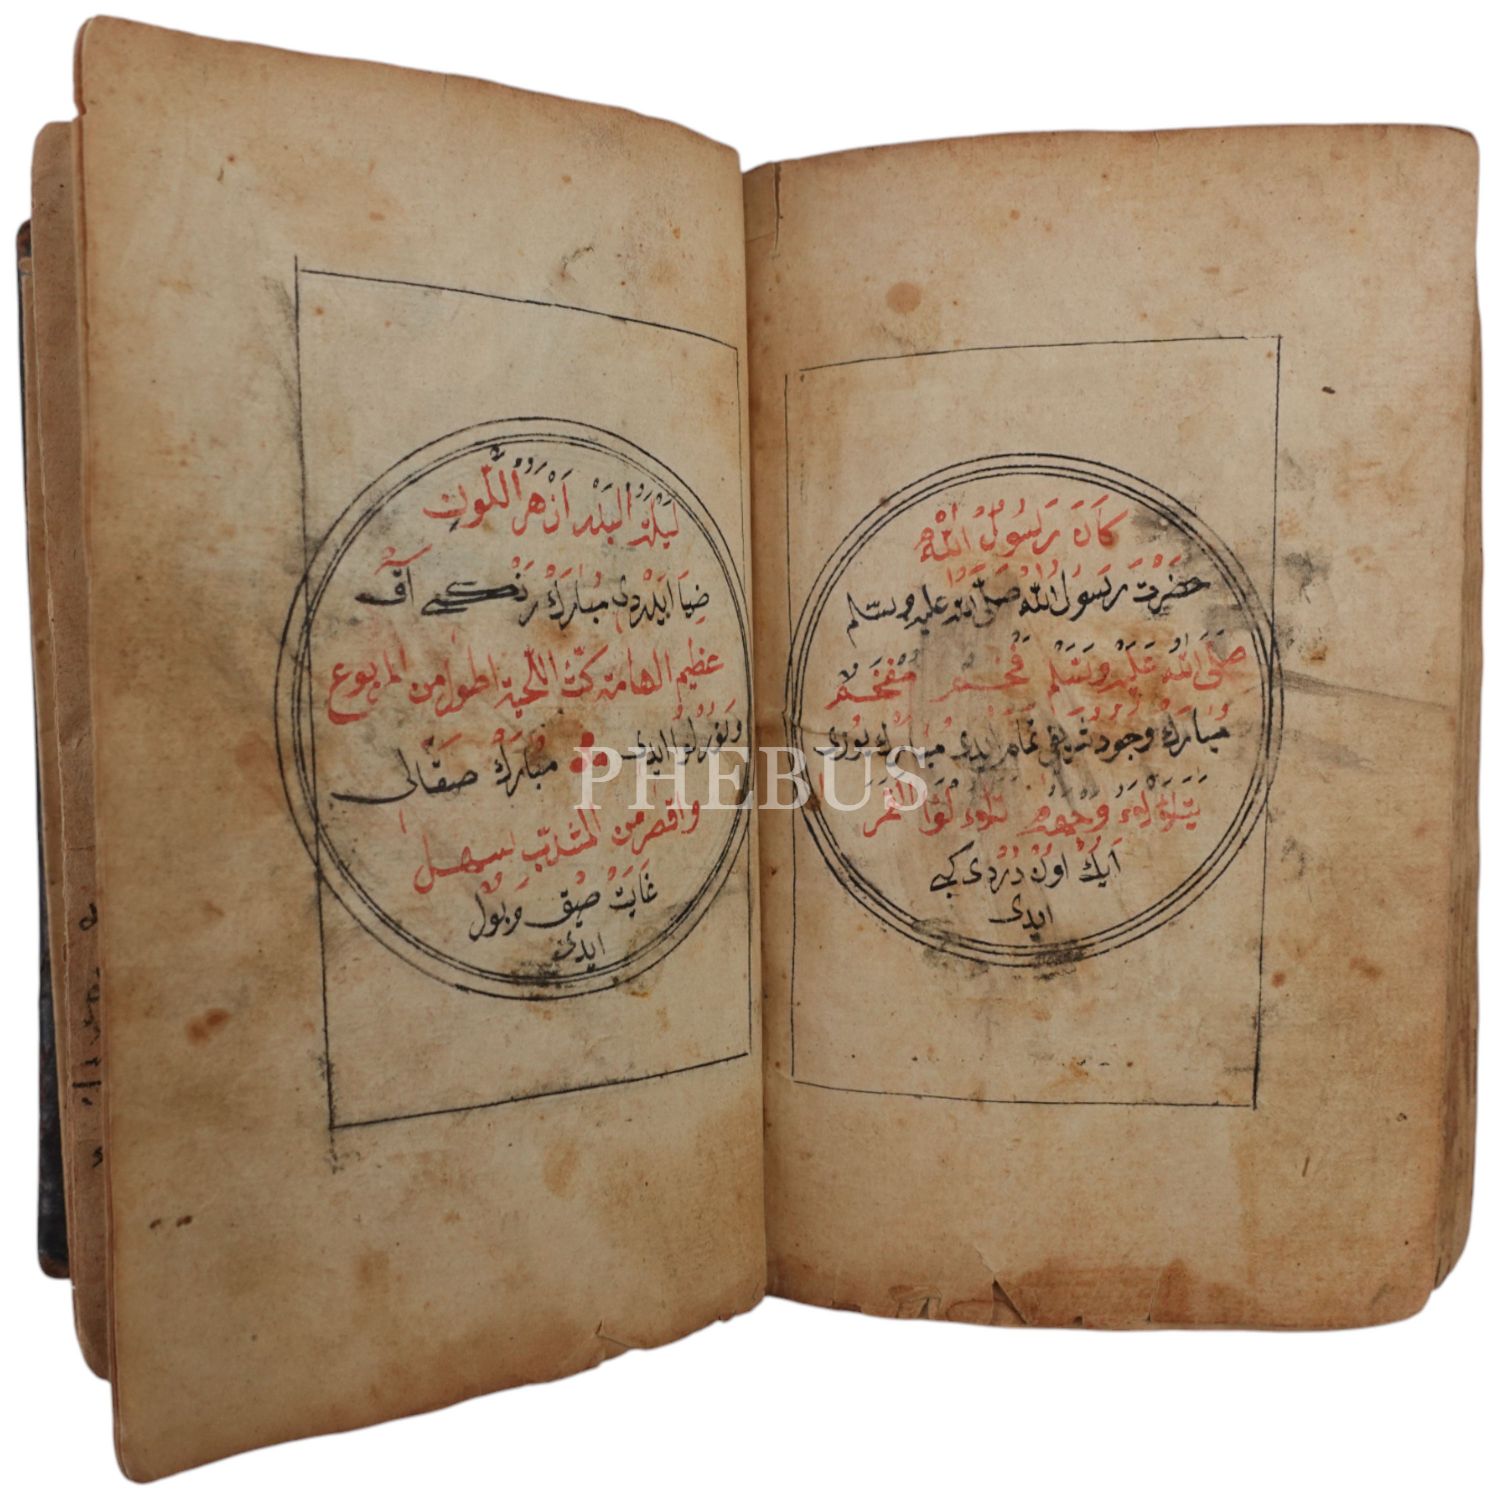 كَانَ رَسُولُ اللّٰهِ
حضرت رسول الله صلى الله عليه وسلم
صَلَّى اللهُ عَلَيْهِ وَسَلَّمَ فَخْمًا مُفَخَّمًا
مبارك وجود شريفى تمام ايدى مبارك يوزى
يَتَلَأْلَؤُ وَجْهُهُ تَلَأْلُؤَ الْقَمَرِ
آيك اون دردى كبى
ايدى
لَيْلَةَ الْبَدْرِ اَزْهَرَ اللَّوْنِ
ضيا ايدردى مبارك رنكى آق
عظيم الهامة كث اللحية اطول من المربوع
ونورلو ايدى مبارك صقالى
واقصر من المشذب سهل
غايت صيق وبول
ايدى
PHEBUS